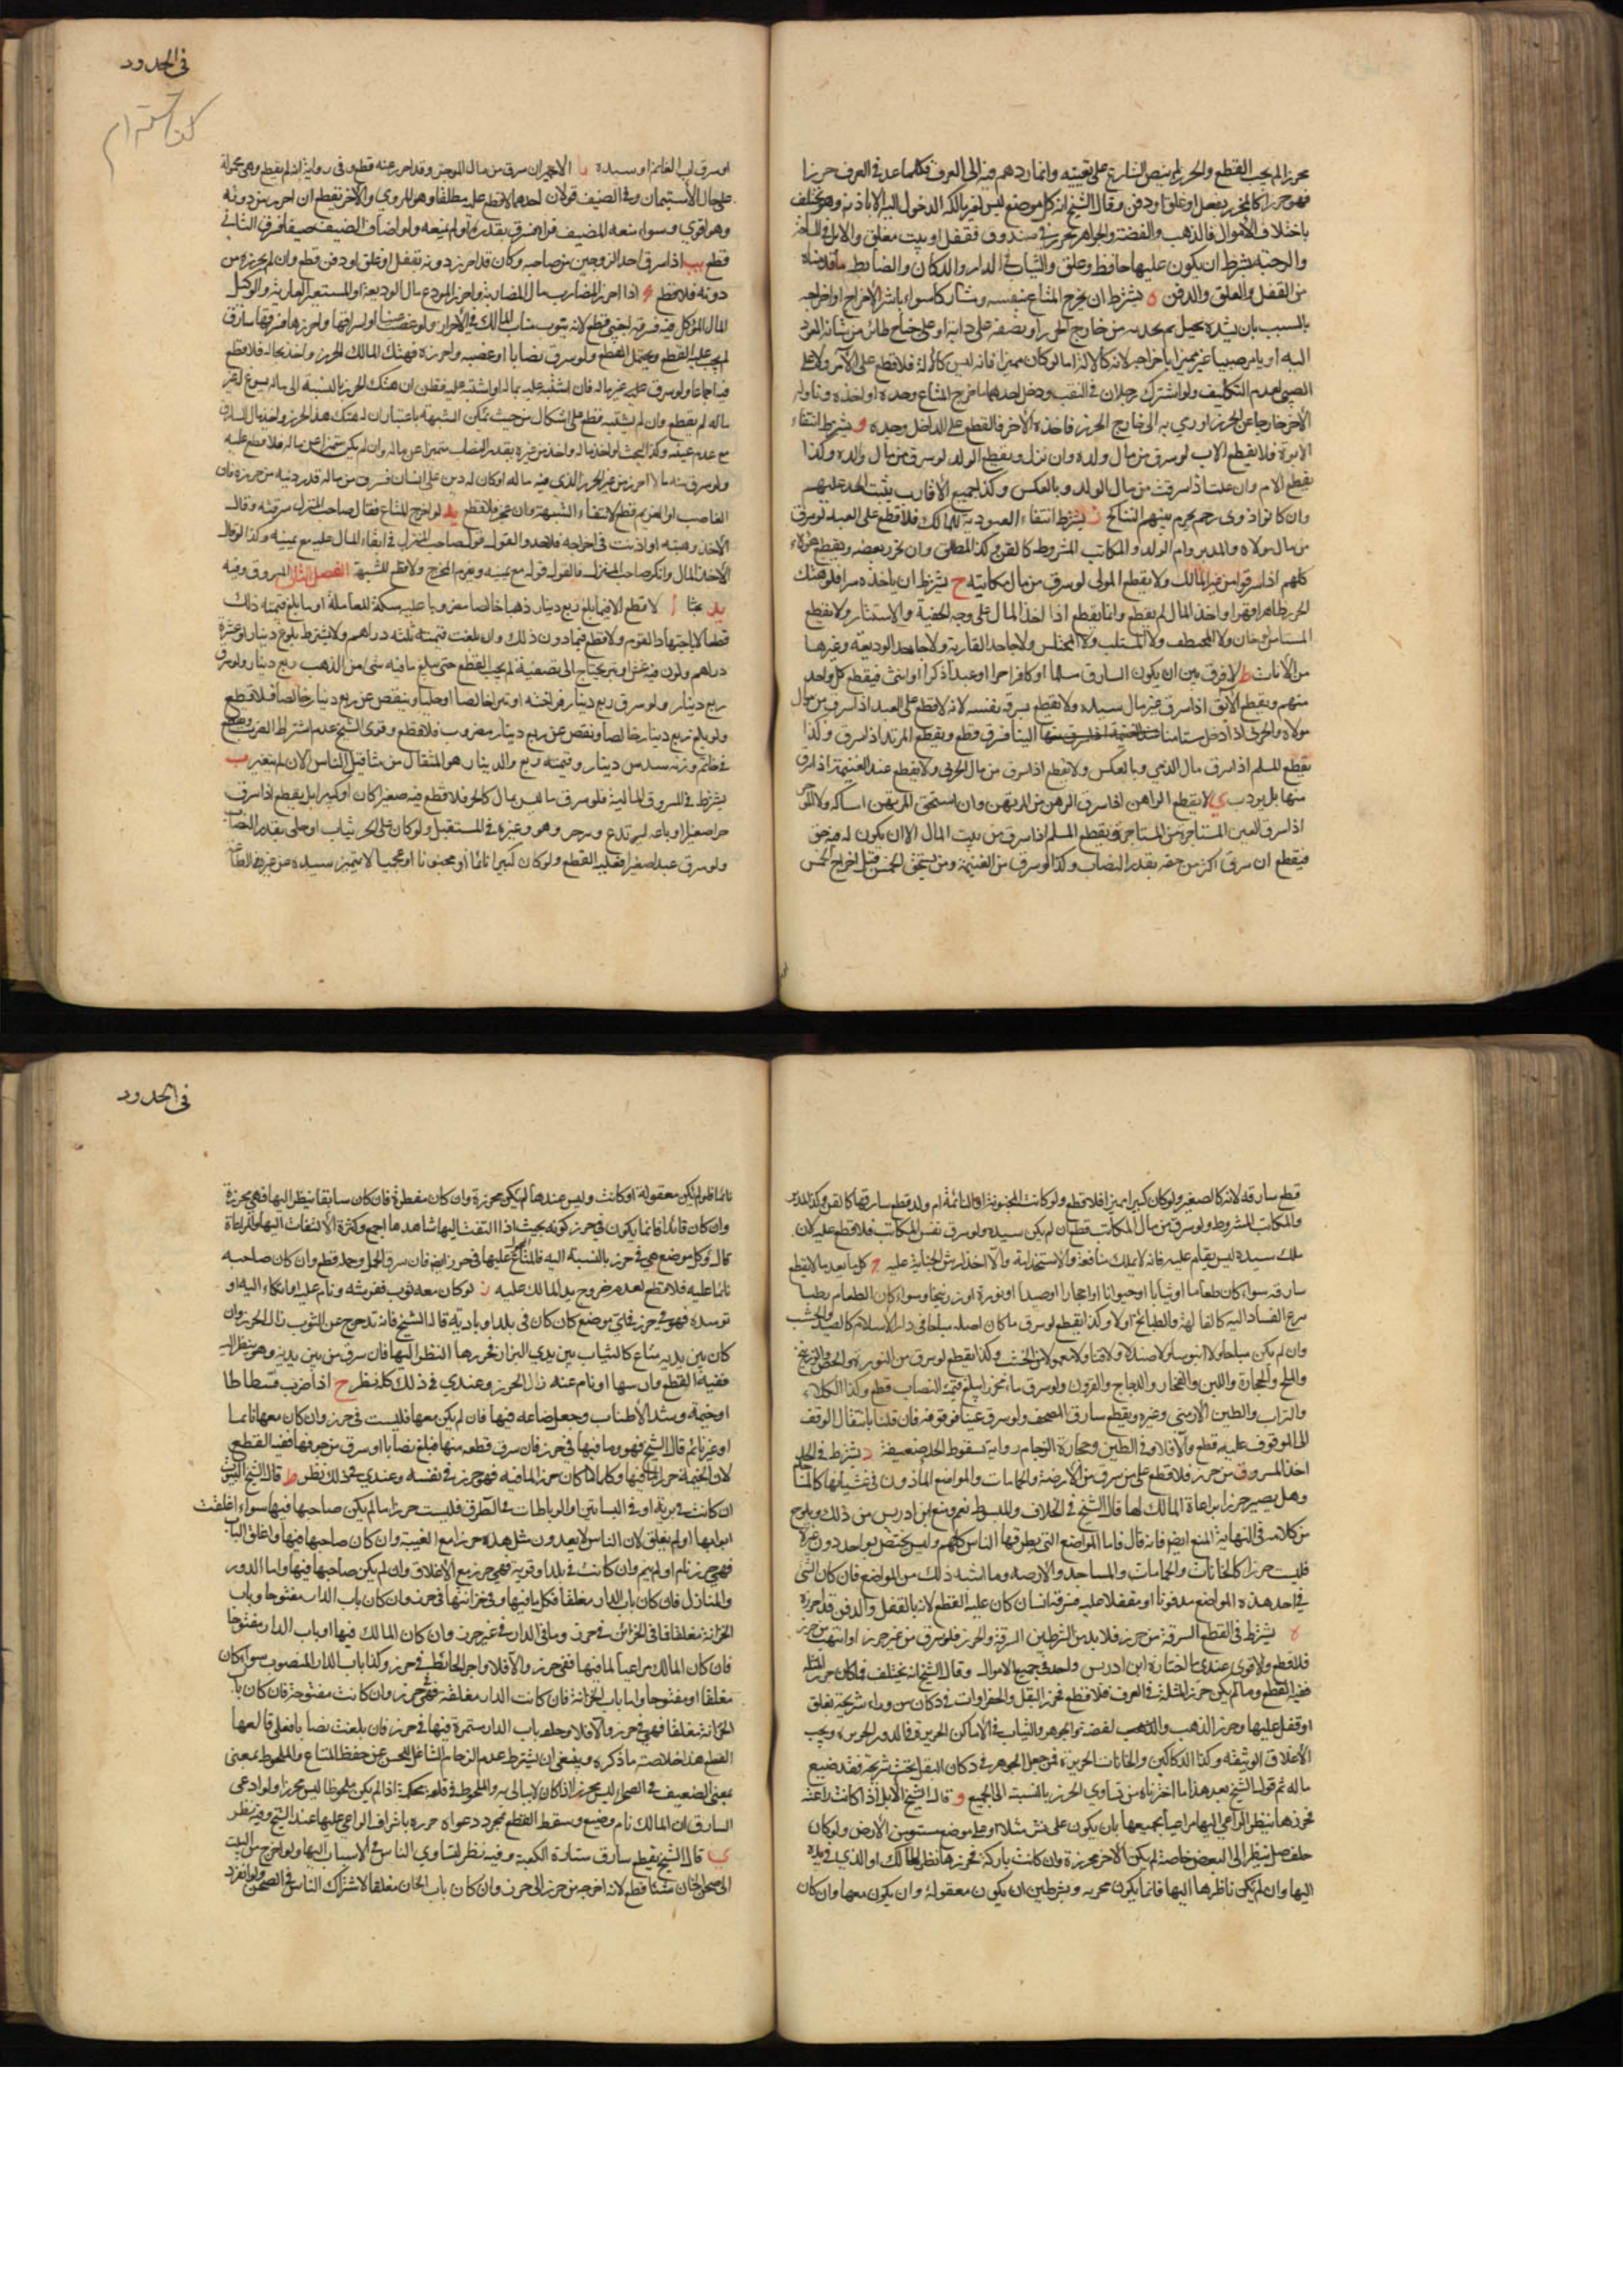 محرزا لم يجب القطع والحرز لم ينص الشارع على تعيينه وانما ردهم فيه الى العرف فكلما عد في العرف حرزا
فهو حرز كالمحرز بقفل او غلق او دفن وقال الشيخ انه كل موضع ليس لغير مالكه الدخول اليه الا باذنه وهو يختلف
باختلاف الأموال فالذهب والفضة والجواهر محرز في صندوق فقفل او بيت مغلق والابل في الساحة
والرحبة بشرط ان يكون عليها حافظ وغلق والثياب في الدار والدكان والضابط ما قلناه
من القفل والغلق والدفن ه يشترط ان يخرج المتاع بنفسه ومشاركا سواء باشر الاخراج او اخراجه
بالسبب بان يشده بحبل ثم يجذبه من خارج الحرز او يضعه على دابة او على جناح طائر من شانه العود
اليه او يامر صبيا غير مميز باخراجه لانه كالآلة اما لو كان مميزا فانه ليس كالآلة فلا قطع على الآمر ولا على
الصبي لعدم التكليف ولو اشترك رجلان في النقب ودخل احدهما فاخرج المتاع وحده او اخذه وناوله
الآخر خارجا عن الحرز او رمى به الى خارج الحرز فاخذه الآخر فالقطع على الداخل وحده و يشترط انتفاء
الابوة فلا يقطع الاب لو سرق من مال ولده وان نزل ويقطع الولد لو سرق من مال والده وكذا
يقطع الام وان علت اذا سرقت من مال الولد وبالعكس وكذا جميع الاقارب يثبت الحد عليهم
وان كانوا ذوي رحم يحرم بينهم التناكح ز يشترط انتفاء العبودية للمالك فلا قطع على العبد لو سرق
من مال مولاه والمدبر وام الولد والمكاتب المشروط كالقن وكذا المطلق وان تحرر بعضه ويقطع هؤلاء
كلهم اذا سرقوا من غير المالك ولا يقطع المولى لو سرق من مال مكاتبه ح يشترط ان ياخذه سرا فلو هتك
الحرز ظاهرا وقهرا واخذ المال لم يقطع وانما يقطع اذا اخذ المال على وجه الخفية والاستتار ولا يقطع
المستامن لو خان ولا المختطف ولا المستلب ولا المختلس ولا جاحد العارية ولا جاحد الوديعة وغيرها
من الأمانات ط لا فرق بين ان يكون السارق مسلما او كافرا حرا او عبدا ذكرا او انثى فيقطع كل واحد
منهم ويقطع الآبق اذا سرق غير مال سيده ولا يقطع بسرقة نفسه لانه لا قطع على العبد اذا سرق من مال
مولاه والحربي اذا دخل مستامنا الينا فسرق قطع ويقطع المرتد اذا سرق وكذا
يقطع المسلم اذا سرق مال الذمي وبالعكس ولا يقطع اذا سرق من مال الحربي ولا يقطع عبد الغنيمة اذا سرق
منها بل يؤدب ي لا يقطع الراهن اذا سرق الرهن من المرتهن وان استحق المرتهن امساكه ولا المؤجر
اذا سرق العين المستاجرة من المستاجر ويقطع المسلم اذا سرق من بيت المال الا ان يكون له فيه حق
فيقطع ان سرق اكثر من حقه بقدر النصاب وكذا لو سرق من الغنيمة ومن يستحق الخمس قبل اخراج الخمس
في الحدود
او سرق اب الغانم او سيده يا الاجير ان سرق من مال الموجر وقد احرز عنه قطع وفي رواية انه لم يقطع وهي محمولة
على حال الاستيمان وفي الضيف قولان احدهما لا قطع عليه مطلقا وهو المروي والآخر يقطع ان احرز من دونه
وهو اقوى وسواء منعه المضيف قراه فسرق بقدره او لم يمنعه ولو اضاف الضيف ضيفا فسرق الثاني
قطع يب اذا سرق احد الزوجين من صاحبه وكان قد احرز دونه بقفل او غلق او دفن قطع وان لم يحرزه من
دونه فلا قطع اذا احرز المضارب مال المضاربة واحرز المودع مال الوديعة والمستعير العارية والوكيل
المال الموكل فيه فسرقه اجنبي قطع لانه ينوب مناب المالك في الاحراز ولو غصب عينا او سرقها واحرزها فسرقها سارق
لم يجب عليه القطع ويحتمل القطع ولو سرق نصابا او غصبه واحرزه فهتك المالك الحرز واخذ ماله فلا قطع
فيه اجماعا ولو سرق عليه غير ماله فان اشتبه عليه بماله
ماله لم يقطع وان لم يشتبه قطع على اشكال من حيث تمكن الشبهة باعتبار ان له هتك هذا الحرز واخذ مال السارق
مع عدم عينه
ولو سرق منه مالا احرز من غير الحرز الذي فيه ماله او كان له دين على انسان فسرق من ماله قدر دينه من حرزه فان
الغاصب او الغريم قطع لانتفاء الشبهة وان عجز فلا قطع يد لو اخرج المتاع فقال صاحب المنزل سرقته وقال
الآخذ وهبته او اذنت في اخراجه فلا حد والقول قول صاحب المنزل في ابقاء المال عليه مع يمينه وكذا لو قال
الآخذ المال وانكر صاحب المنزل فالقول قوله مع يمينه ويغرم المخرج ولا قطع للشبهة الفصل الثاني المسروق وفيه
يد بحثا ا لا قطع الا فيما بلغ ربع دينار ذهبا خالصا مضروبا عليه سكة للمعاملة او ما يبلغ قيمته ذلك
قطعا
دراهم ولو كان فيه غش او تبر يحتاج الى تصفية لم يجب القطع حتى يبلغ ما فيه شيء من الذهب ربع دينار ولو سرق
ربع دينار
ولو بلغ ربع دينار خالصا ونقص عن ربع دينار مضروب فلا قطع وقوى الشيخ عدم اشتراط الضرب
في خاتم وزنه سدس دينار وقيمته ربع والدينار هو المثقال من مثاقيل الناس الآن لم يتغير ب
يشترط في المسروق المالية فلو سرق ما ليس بمال كالحر فلا قطع فيه صغيرا كان او كبيرا بل يقطع اذا سرق
حرا صغيرا وباعه ليرتدع
ولو سرق عبدا صغيرا فعليه القطع ولو كان كبيرا نائما او مجنونا او عجميا لا يتميز سيده عن غيره في الطاعة
قطع سارقه لانه كالصغير ولو كان كبيرا مميزا فلا قطع ولو كانت المجنونة او النائمة ام ولد قطع سارقها كالقن وكذا المدبر
والمكاتب المشروط ولو سرق من مال المكاتب قطع ان لم يكن سيده ولو سرق نفس المكاتب فلا قطع عليه لان
ملك سيده ليس بتام عليه فانه لا يملك منافعه ولا استخدامه ولا اخذ ارش الجناية عليه ج كل ما يعد مالا يقطع
سارقه سواء كان طعاما او ثيابا او حيوانا او احجارا او صيدا او نورة او زرنيخا وسواء كان الطعام رطبا
يسرع الفساد اليه كالفاكهة والطبائخ او لا وكذا يقطع لو سرق ما كان اصله مباحا في دار الاسلام كالصيد والخشب
وان لم يكن
والملح والحجارة واللبن والفخار والدجاج
والتراب والطين الارمني وغيره ويقطع سارق المصحف ولو سرق عينا موقوفة فان قلنا بانتقال الوقف
الى الموقوف عليه قطع والا فلا وفي الطين وحجارة الرخام رواية بسقوط الحد ضعيفة د يشترط في الحد
اخذ المسروق من حرز فلا قطع على من سرق من الارحية والحمامات والمواضع الماذون في غشيانها كالمساجد
وهل يصير حرزا بمراعاة المالك لها قال الشيخ في الخلاف والمبسوط نعم ومنع ابن ادريس من ذلك ويلوح
من كلامه في النهاية المنع ايضا فانه قال فاما المواضع التي يطرقها الناس كلهم وليس يختص بواحد دون غيره
فليست حرزا كالخانات والحمامات والمساجد والارحية وما اشبه ذلك من المواضع فان كان الشيء
في احد هذه المواضع مدفونا او مقفلا عليه فسرقه انسان كان عليه القطع لانه بالقفل والدفن قد احرزه
ه يشترط في القطع السرقة من حرز فلا بد من الشرطين السرقة والحرز فلو سرق من غير حرز او انتهب من حرز
فلا قطع والاقوى عندي ما اختاره ابن ادريس واحد في جميع الاموال وقال الشيخ انه يختلف فما كان حرزا لمثله
ففيه القطع وما لم يكن حرزا لمثله في العرف فلا قطع فحرز البقل والخضراوات في دكان من وراء شريجة تغلق
او قفل عليها وحرز الذهب والفضة والجوهر والثياب في الاماكن الحريزة في الدور الحريزة ويجب
الأغلاق الوثيقة وكذا الدكاكين والخانات الحريزة فمن جعل الجوهر في دكان البقل تحت شريجة فقد ضيع
ماله ثم قول الشيخ بعد هذا ما اخترناه من تساوي الحرز بالنسبة الى الجميع و قال الشيخ الابل اذا كانت راعية
فحرزها بنظر الراعي اليها مراعيا لجميعها بان يكون على نشز مثلا او على موضع مستو من الارض ولو كان
خلف جبل ينظر الى البعض خاصة لم يكن الآخر محرزة وان كانت باركة فحرزها بنظر المالك او الذي في يده
اليها وان لم يكن ناظرها اليها فانما يكون محرزه بشرطين ان يكون معقولة وان يكون معها وان كان
في الحدود
نائما فلو لم يكن معقولة او كانت وليس عندها لم يكن محرزة وان كان مقطورة فان كان سابقا ينظر اليها فهي محرزة
وان كان قائدا فانما يكون في حرز كونه بحيث اذا التفت اليها شاهدها اجمع وكثرة الالتفات اليها والمراعاة
قال وكل موضع هي في حرز بالنسبة اليه فالمتاع عليها في حرز ايضا فان سرق الحمل وحده قطع وان كان صاحبه
نائما عليه فلا قطع لعدم خروج يد المالك عليه ز لو كان معه ثوب ففرشه ونام عليه او اتكاء اليه او
توسده فهو في حرز في اي موضع كان كان في بلد او بادية قال الشيخ فان تدحرج عن الثوب زال الحرز وان
كان بين يديه متاع كالثياب بين يدي البزاز فحرزها النظر اليها فان سرق من بين يديه وهو ينظر اليه
ففيه القطع وان سها او نام عنه زال الحرز وعندي في ذلك كله نظر ح اذا ضرب فسطاطا
او خيمة وشد الأطناب وجعل متاعه فيها فان لم يكن معها فليست في حرز وان كان معها نائما
او غير نائم قال الشيخ فهو وما فيها في حرز فان سرق قطعة منها فبلغ نصابا او سرق من جوفها ففيه القطع
لان الخيمة حرز لما فيها وكلما كان حرزا لما فيه فهو حرز في نفسه وعندي في ذلك نظر ط قال الشيخ البيوت
ان كانت في برية او في البساتين او الرباطات في الطرق فليست حرزا ما لم يكن صاحبها فيها سواء اغلقت
ابوابها او لم يغلق لان الناس لا يعدون مثل هذه حرزا مع الغيبة وان كان صاحبها فيها واغلق الباب
فهي حرز نام او لم ينم وان كانت في بلد او قرية فهي حرز مع الاغلاق وان لم يكن صاحبها فيها واما الدور
والمنازل فان كان باب الدار مغلقا فكل ما فيها وفي خزانتها في حرز وان كان باب الدار مفتوحا وباب
الخزانة مغلقا فما في الخزائن في حرز وما في الدار في غير حرز وان كان المالك فيها وباب الدار مفتوحا
فان كان المالك مراعيا لما فيها ففي حرز والا فلا واجر الحائط في حرز وكذا باب الدار المنصوب سواء كان
مغلقا او مفتوحا واما باب الخزانة فان كانت الدار مغلقة فهي حرز وان كانت مفتوحة فان كان باب
الخزانة مغلقا فهي في حرز والا فلا وحلقة باب الدار مستمرة فيها في حرز فان بلغت نصابا فعلى قالعها
القطع هذا خلاصة ما ذكره وينبغي ان يشترط عدم الزحام الشاغل للحس عن حفظ المتاع والملحوظ بمعنى
بمعنى الضعيف في الصحراء ليس بحرز اذا كان لا يبالى به والملحوظ في قلعة محكمة اذا لم يكن ملحوظا ليس محرزا ولو ادعى
السارق ان المالك نام وضيع وسقط القطع بمجرد دعواه حرزه باشراف الراعي عليها عند الشيخ وفيه نظر
ي قال الشيخ يقطع سارق ستارة الكعبة وفيه نظر لتساوي الناس في الاسباب اليها ولو اخرج من البيت
الى صحن الخان شيئا قطع لانه اخرجه من حرز الى حرز وان كان باب الخان مغلقا لاشتراك الناس في الصحن ولو انفرد